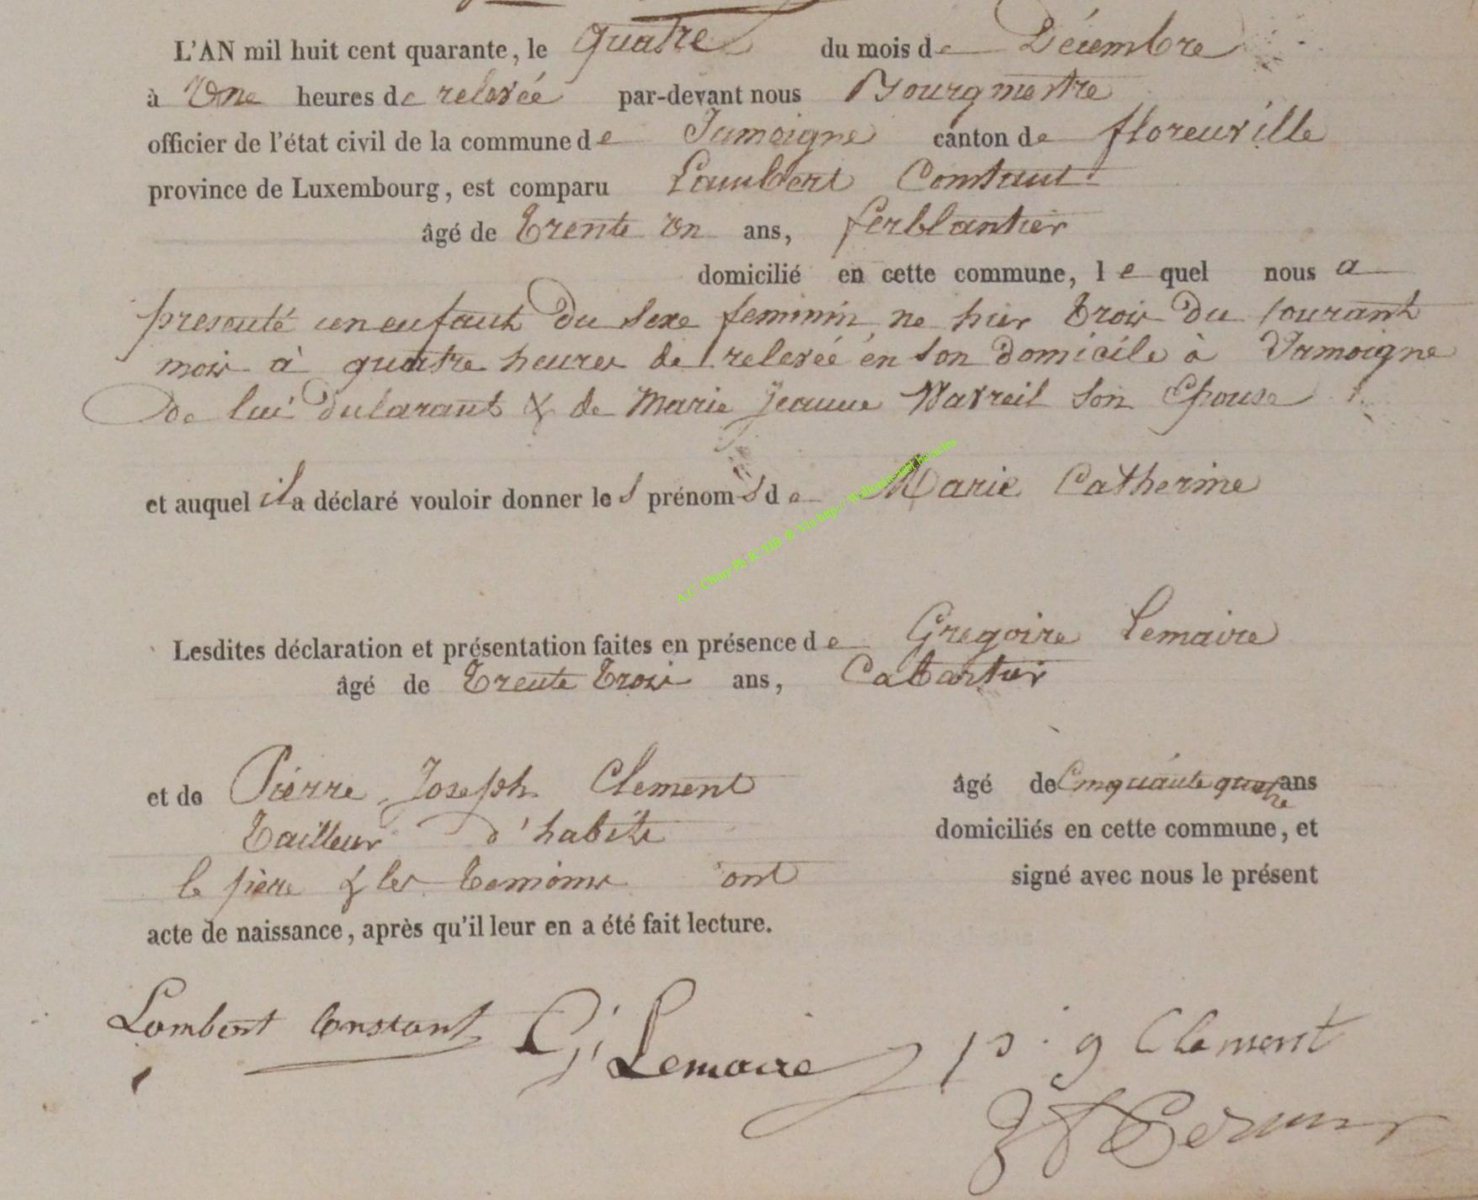 L'AN mil huit cent quarante, le quatre du mois de Décembre
à Une heures de relevée par-devant nous Bourgmestre
officier de l'état civil de la commune de Jamoigne canton de florenville
province de Luxembourg, est comparu Lambert Constant
âgé de trente un ans, ferblantier
domicilié en cette commune, le quel nous a
presenté un enfant du sexe feminin ne hier trois du courant
mois à quatre heures de relevée en son domicile à Jamoigne
De lui dularant & de Marie Jeanne son Epouse
et auquel il a déclaré vouloir donner les prénoms de Marie Catherine
Lesdites déclaration et présentation faites en présence de Gregoire Lemaire
âgé de trente trois ans, Cabartier
et de Pierre Joseph Clement âgé de Cinquante quatre ans
Tailleur d'habits domiciliés en cette commune, et
le père & les temoins ont signé avec nous le présent
acte de naissance, après qu'il leur en a été fait lecture.
Lambert Constant G Lemaire p. j Clement